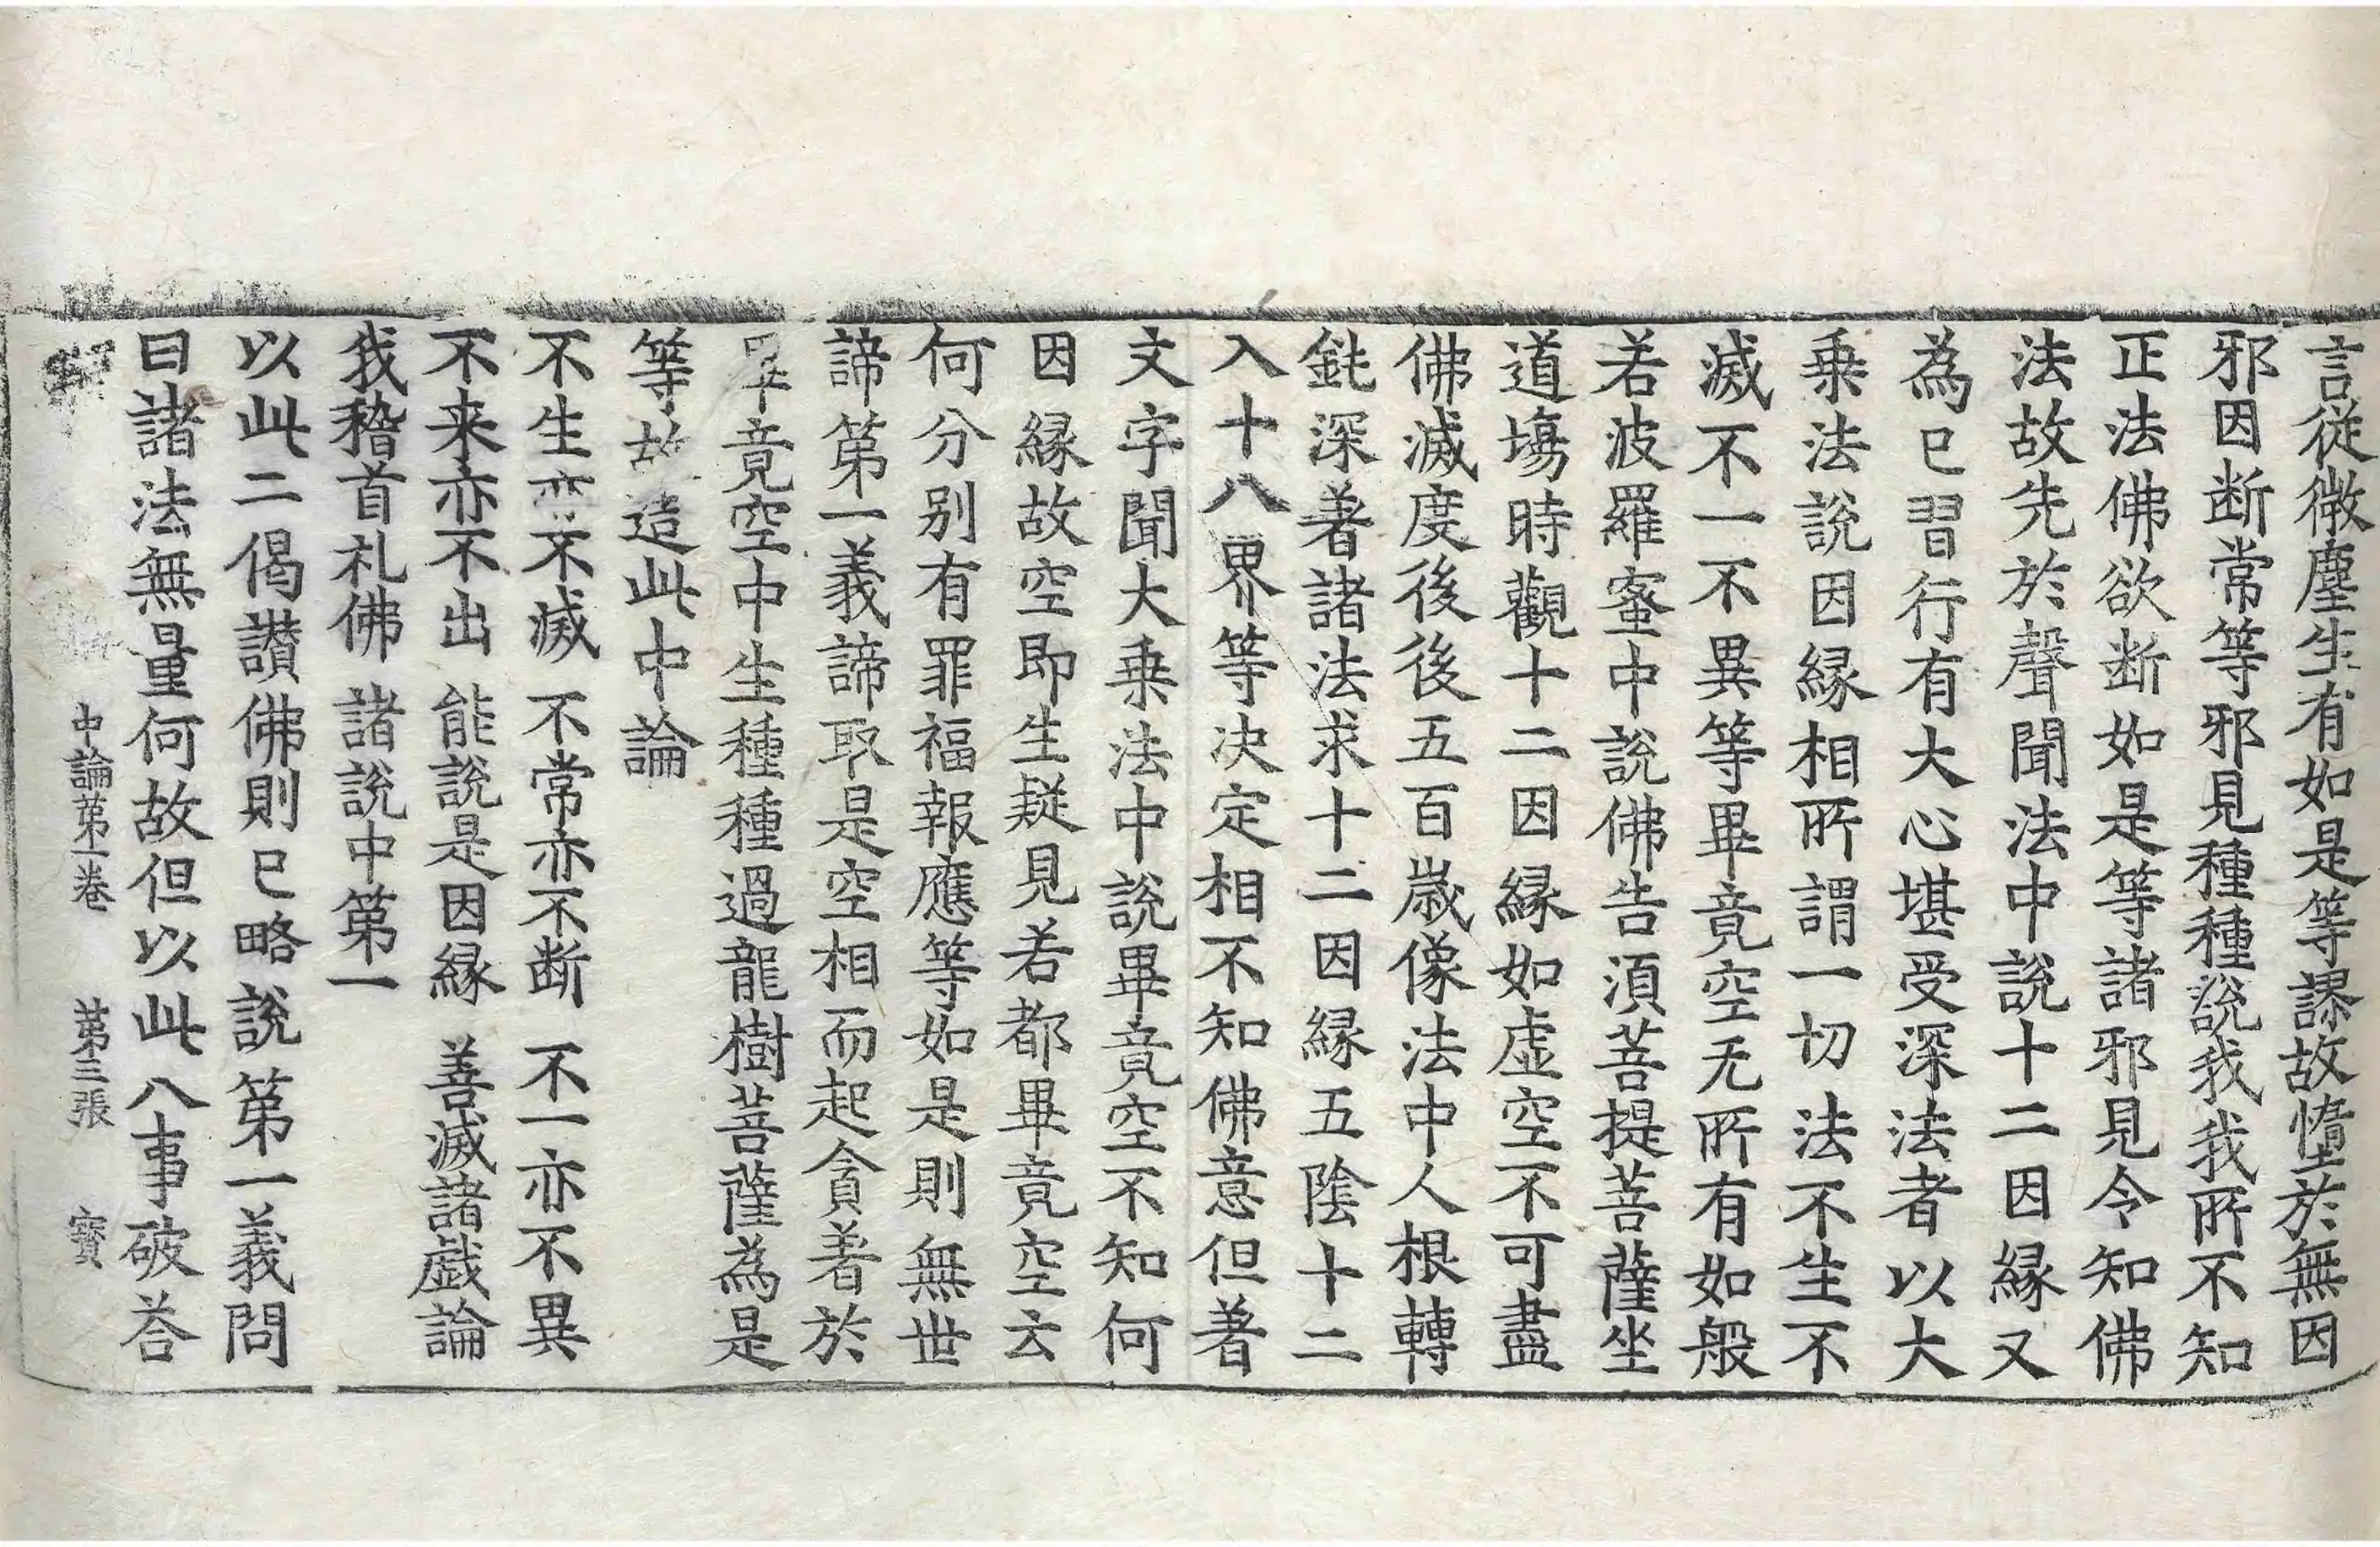 言從微塵生有如是等謬故墮於無因
邪因断常等邪見種種說我我所不知
正法佛欲断如是等諸邪見令知佛
法故先於聲聞法中說十二因縁又
為已習行有大心堪受深法者以大
乗法說因縁相所謂一切法不生不
滅不一不異等畢竟空无所有如般
若波羅蜜中說佛告湏菩提菩薩坐
道塲時觀十二因縁如虛空不可盡
佛滅度後後五百歳像法中人根轉
鈍深著諸法求十二因縁五陰十二
入十八界等决定相不知佛意但著
文字聞大乗法中說畢竟空不知何
因縁故空即生疑見若都畢竟空云
何分别有罪福報應等如是則無世
諦第一義諦取是空相而起貪著於
畢竟空中生種種過龍樹菩薩為是
等故造此中論
不生亦不滅 不常亦不断 不一亦不異
不来亦不出 能說是因縁 善滅諸戱論
我稽首礼佛 諸說中第一
以此二偈讃佛則已略說第一義問
曰諸法無量何故但以此八事破荅
中論第一卷 第三張 寳